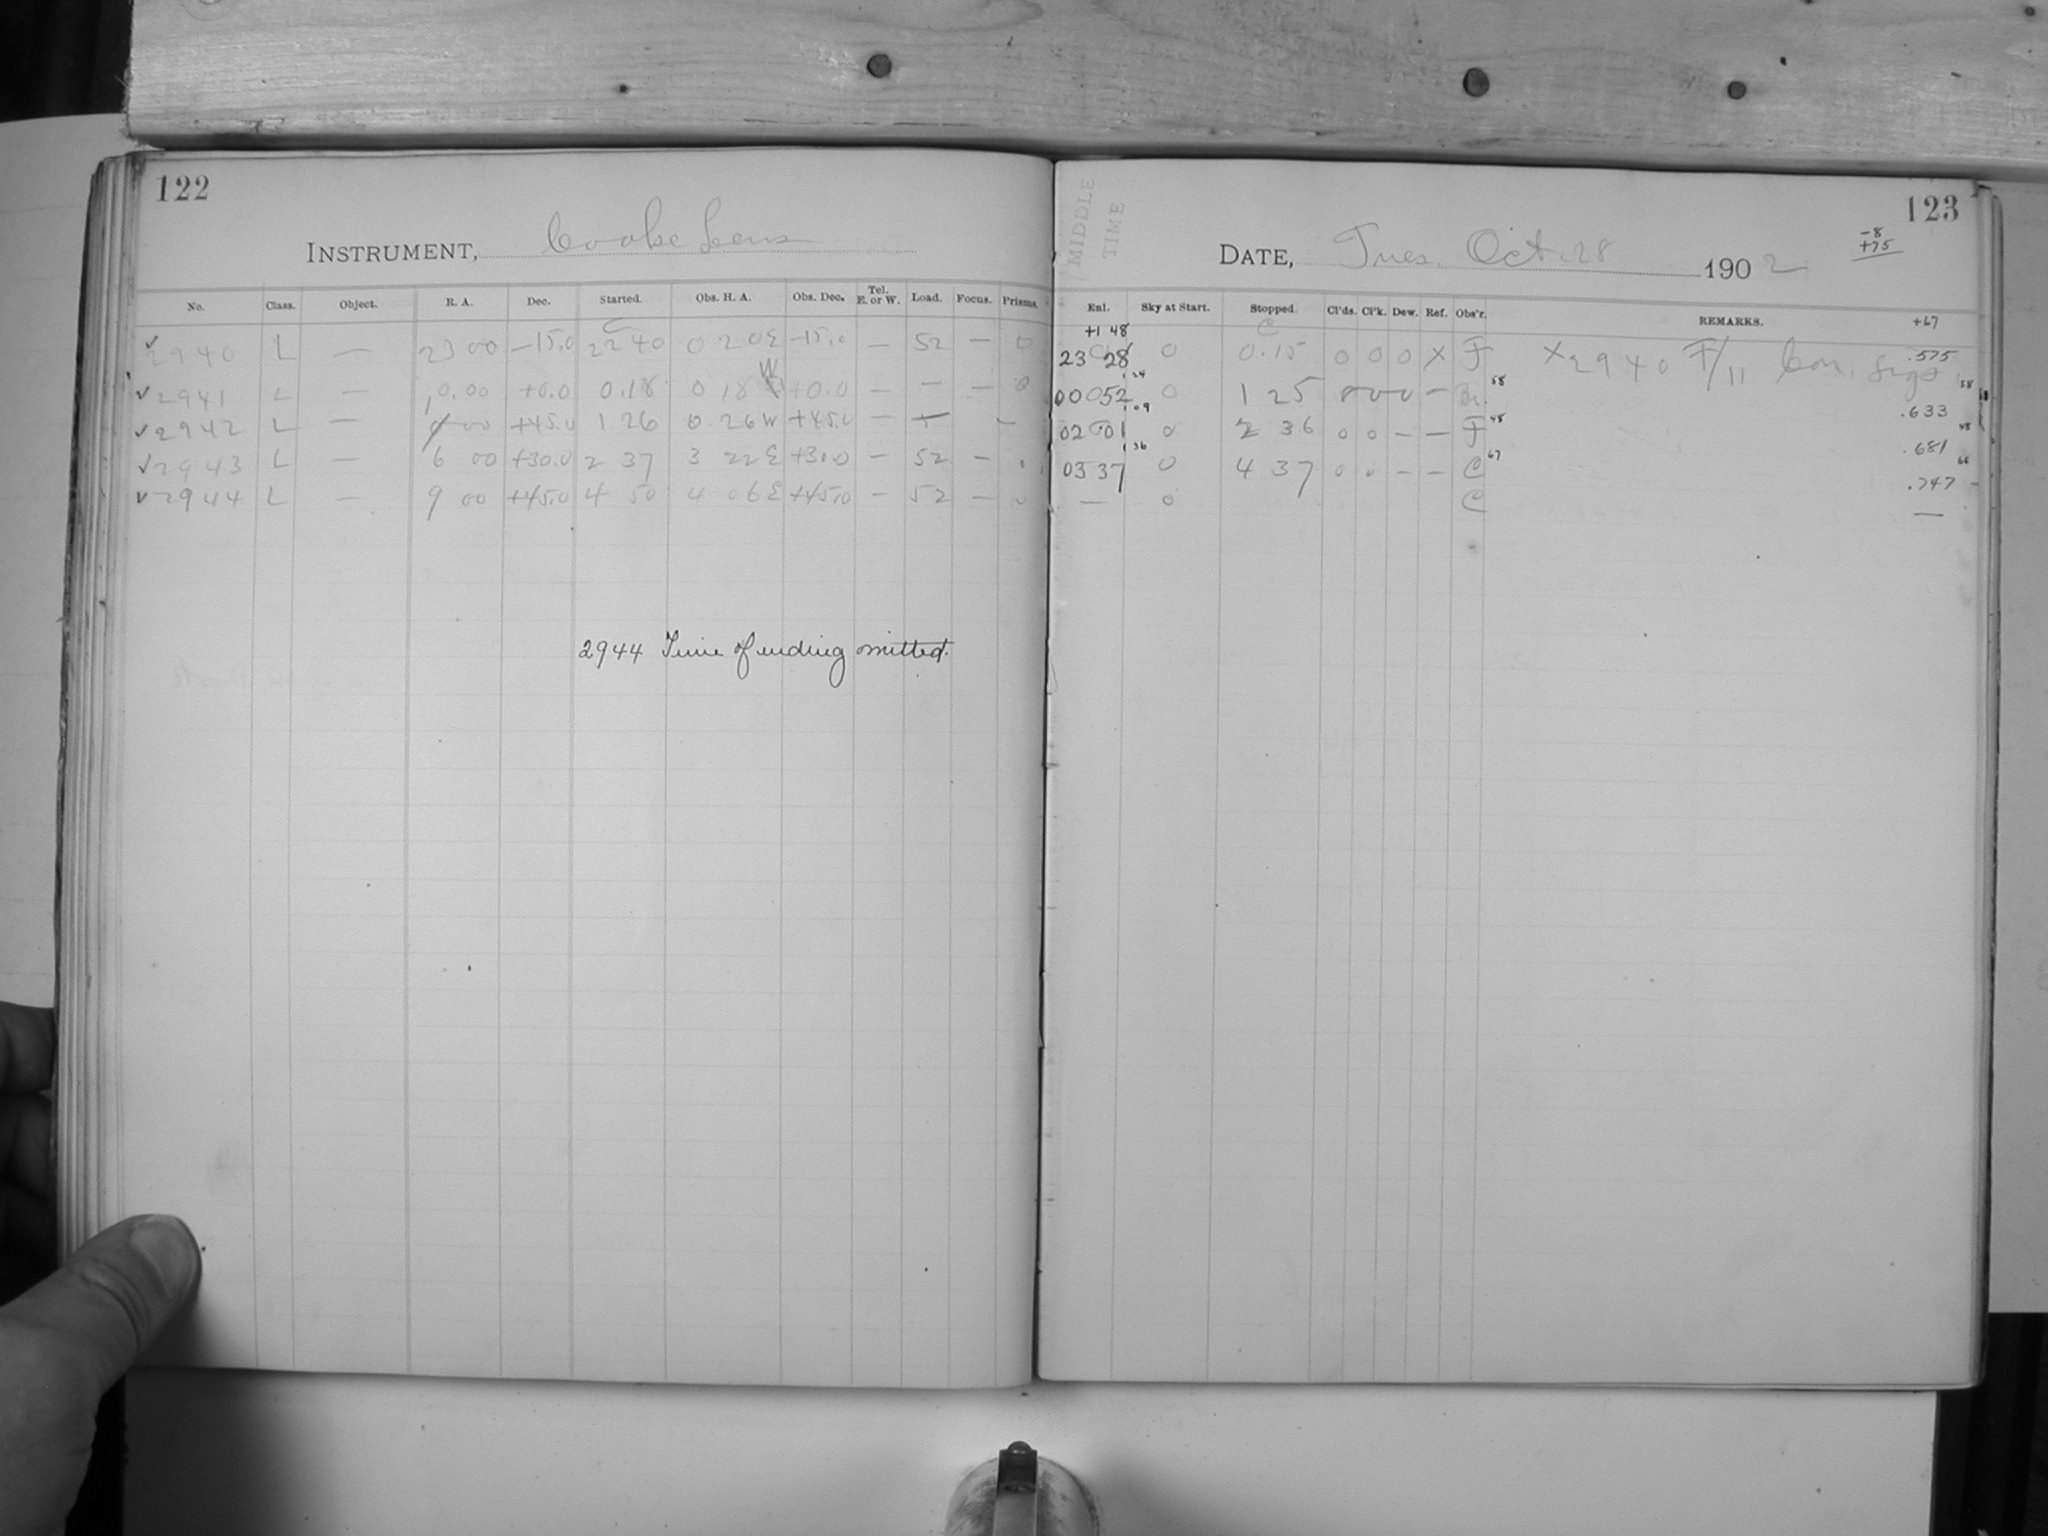 122
INSTRUMENT, Cooke Lens
No. Class. Object. R. A. Dec. Started. Obs. H. A. Obs. Dec. Tel. E. or W. Load. Focus. Prisms.
✓ 2940 L — 23 00 —15.0 22 40 0 20 E —15.0 — 52 — 0
✓ 2941 L — 0.00 +0.0 0.18 0 18 W +0.0 — — — 0
✓ 2942 L — 00 +45.0 1 26 0 26 W +45.0 — — —
✓ 2943 L — 6 00 +30.0 2 37 3 22 E +30.0 — 52 —
✓ 2944 L — 9 00 +45.0 4 50 4 06 E +45.0 — 52 — 0
2944 Time of ending omitted.
MIDDLE
TIME
123
DATE, Tues. Oct. 28 1902
-8
+75
Enl. Sky at Start. Stopped. Cl'ds. Cl'k. Dew. Ref. Obs'r. REMARKS. +67
+1 48
23 28 0 0.15 0 0 0 X F X 2940 F/11 .575
1 24
00 52 0 1 25 0 0 0 — 58 .633 58
1 09
02 01 0 2 36 0 0 — — F 48 .681 48
1 36
03 37 0 4 37 0 0 — — C 67 .747 66
— 0 C —